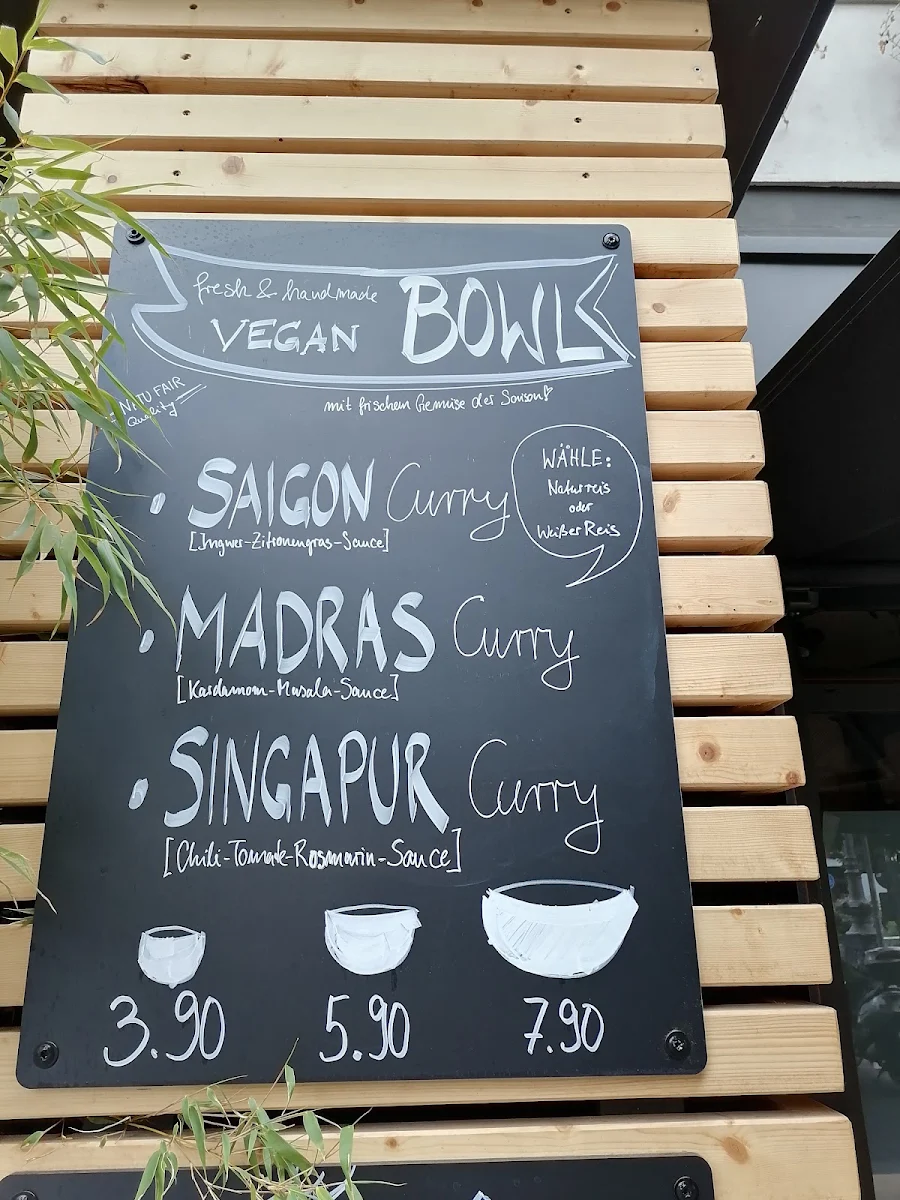 fresh & handmade
VEGAN BOWL
NATUFAIR
Quality
mit frischem Gemüse der Saison
• SAIGON Curry
[Ingwer-Zitronengras-Sauce]
WÄHLE:
Naturreis
oder
Weißer Reis
• MADRAS Curry
[Kardamom-Masala-Sauce]
• SINGAPUR Curry
[Chili-Tomate-Rosmarin-Sauce]
3.90 5.90 7.90